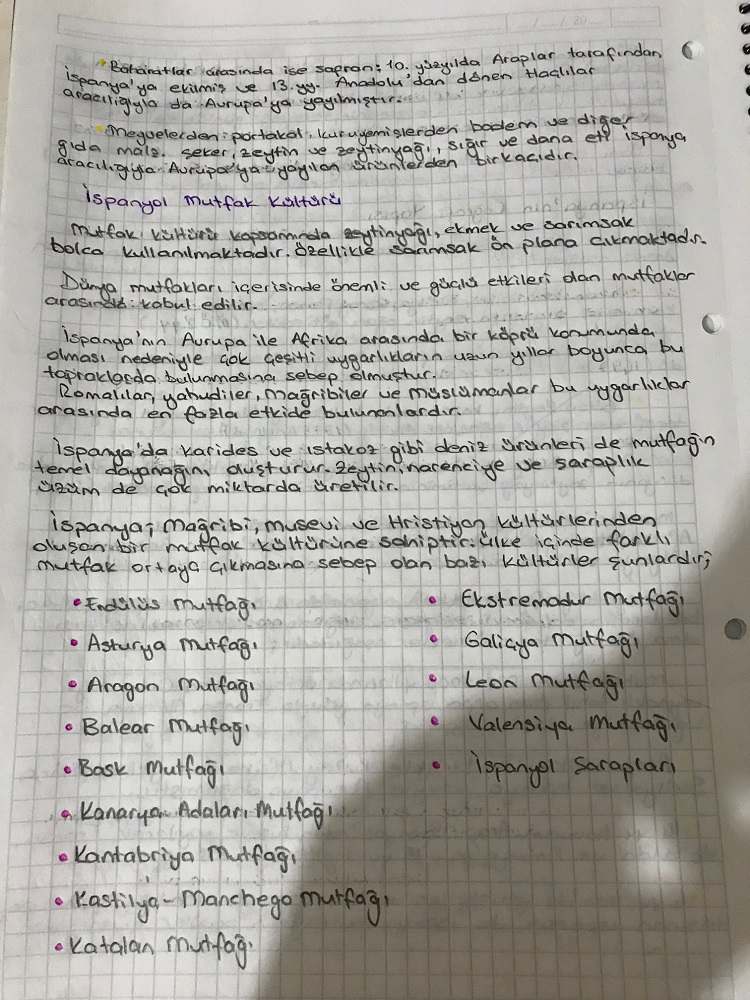 Baharatlar arasında ise safran; 10. yüzyılda Araplar tarafından
İspanya'ya ekilmiş ve 13.yy. Anadolu'dan dönen Haçlılar
aracılığıyla da Avrupa'ya yayılmıştır.
Meyvelerden; portakal, kuruyemişlerden badem ve diğer
gıda malz. şeker, zeytin ve zeytinyağı, sığır ve dana eti İspanya
aracılığıyla Avrupa'ya yayılan ürünlerden birkaçıdır.
İspanyol Mutfak Kültürü
Mutfak kültürü kapsamında zeytinyağı, ekmek ve sarımsak
bolca kullanılmaktadır. Özellikle sarımsak ön plana çıkmaktadır.
Dünya mutfakları içerisinde önemli ve güçlü etkileri olan mutfaklar
arasında kabul edilir.
İspanya'nın Avrupa ile Afrika arasında bir köprü konumunda
olması nedeniyle çok çeşitli uygarlıkların uzun yıllar boyunca bu
topraklarda bulunmasına sebep olmuştur.
Romalılar, yahudiler, mağribiler ve müslümanlar bu uygarlıklar
arasında en fazla etkide bulunanlardır.
İspanya'da karides ve ıstakoz gibi deniz ürünleri de mutfağın
temel dayanağını oluşturur. Zeytin, narenciye ve şaraplık
üzüm de çok miktarda üretilir.
İspanya; mağribi, musevi ve Hristiyan kültürlerinden
oluşan bir mutfak kültürüne sahiptir. Ülke içinde farklı
mutfak ortaya çıkmasına sebep olan bazı kültürler şunlardır;
• Endülüs Mutfağı
• Asturya Mutfağı
• Aragon Mutfağı
• Balear Mutfağı
• Bask Mutfağı
• Kanarya Adaları Mutfağı
• Kantabriya Mutfağı
• Kastilya-Manchego Mutfağı
• Katalan Mutfağı
• Ekstremadur Mutfağı
• Galiçya Mutfağı
• Leon Mutfağı
• Valensiya Mutfağı
• İspanyol Şarapları